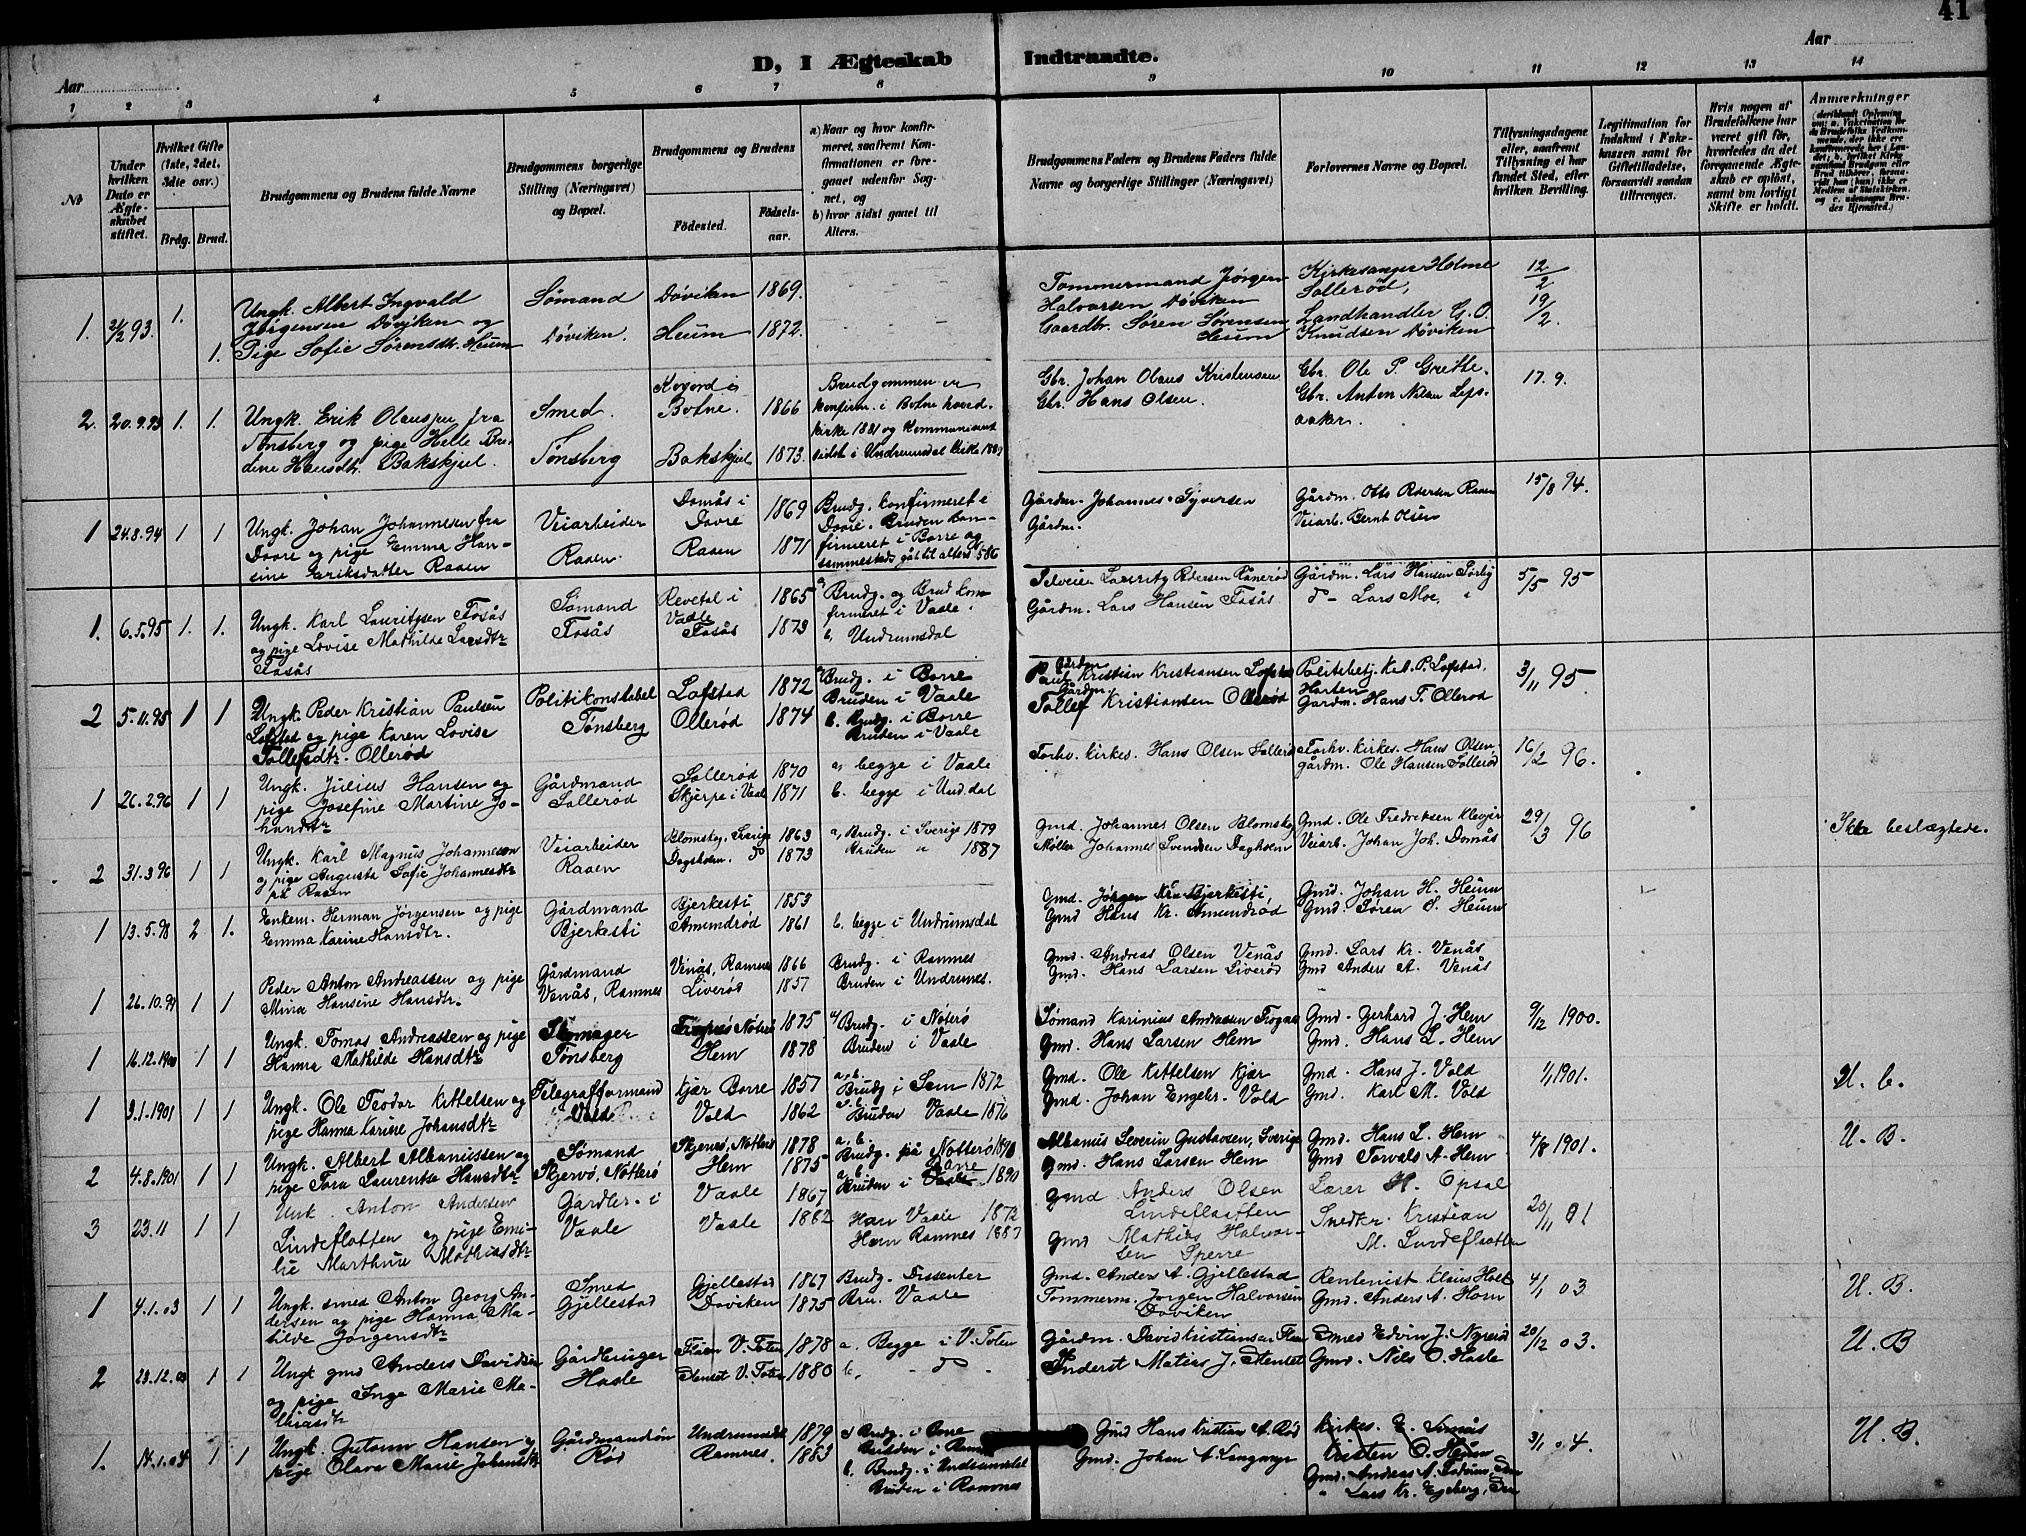 41
D, I Ægteskab Indtraadte.
Aar
Aar
1 2 3 4 5 6 7 8 9 10 11 12 13 14
No
Under hvilken Dato er Ægteskabet stiftet.
Hvilket Gifte (1ste, 2det, 3die osv.)
Brdg. Brud.
Brudgommens og Brudens fulde Navne
Brudgommens borgerlige Stilling (Næringsvei) og Bopæl.
Brudgommens og Brudens
Födested. Födsels-aar.
a) Naar og hvor konfirmeret, saafremt Konfirmationen er foregaaet udenfor Sognet, og
b) hvor sidst gaaet til Alters.
Brudgommens Faders og Brudens Faders fulde Navne og borgerlige Stillinger (Næringsvei)
Forlovernes Navne og Bopæl.
Tillysningsdagene eller, saafremt Tillysning ei har fundet Sted, efter hvilken Bevilling.
Legitimation for Indskud i Enkekassen samt for Giftetilladelse, forsaavidt saadan tiltrænges.
Hvis nogen af Brudefolkene har været gift för, hvorledes da det foregaaende Ægteskab er oplöst, samt om lovligt Skifte er holdt.
Anmærkninger
1. 21/2 93. 1. 1. Ungk. Albert Ingvald
Jørgensen Døviken og
Pige Sofie Sørensdtr. Heum
Sømand
Døviken.
Døviken 1869.
Heum 1872.
Tømmermand Jørgen
Halvorsen Døviken
Gaardbr. Søren Sørensen
Heum
Kirkesanger Holme
Sollerød,
Landhandler G. O.
Knudsen Døviken
12/2
19/2.
2. 20.9.93 1. 1. Ungk. Erik Olaussen fra
Tønsberg og pige Helle Bre-
dine Hansdtr. Bakskjul.
Smed.
Tønsberg
Botne. 1866
Bakskjul 1873.
Brudgommen er
konfirm. i Botne hoved-
kirke 1881 og kommuniceret
sidst i Undrumsdal kirke
Gbr. Johan Olaus Kristensen
Gbr. Hans Olsen.
Gbr. Ole P. Grette.
Gbr. Anton Nilsen Leps-
aaker.
17. 9.
1 24.8.94 1 1 Ungk. Johan Johannesen fra
Dovre og pige Emma Han-
sine Eriksdatter Raaen
Veiarbeider
Raaen.
Domås i
Dovre 1869
Raaen 1871
Brudg. konfirmeret i
Dovre. Bruden kon-
firmeret i Borre og
sammesteds gåt til alters
Gårdm. Johannes Syversen
Gårdm.
Gårdm. Otto Pedersen Raaen
Veiarb. Bernt Olsen
15/8 94.
1. 6.5.95 1. 1. Ungk. Karl Lauritzsen Fosås
og pige Lovise Mathilde Larsdtr
Fosås
Sømand
Fosås
Revetal i
Vaale 1865
Fosås 1873
a, Brudg. og Brud kon-
firmeret i Vaale.
b, Undrumsdal
Lauritz Pedersen Rånerød
Gårdm. Lars Hansen Fosås
Gårdm. Lars Hansen Sørby
do - Lars Moe,
5/5 95
2 5.11.95 1 1 Ungk. Peder Kristian Paulsen
Lofstad og pige Karen Lovise
Tollefsdtr. Ollerød
Politikonstabel
Tønsberg
Lofstad 1872
Ollerød 1874
a, Brudg. i Borre
Bruden i Vaale
b. Brudg. i Borre
Bruden i Vaale
Gårdm
Paul Kristian Kristiansen Lofstad
Gårdm.
Tollef Kristiansen Ollerød
Politibetj. Kri. P. Lofstad,
Horten
Gårdm. Hans T. Ollerød
3/11 95.
1 26.2.96 1 1 Ungk. Julius Hansen og
pige Josefine Martine Jo-
hansdtr
Gårdmand
Sollerød
Sollerød 1870
Skjerpe i Vaale 1871
a, begge i Vaale
b. begge i Und.dal
Forhv. kirkes. Hans Olsen Sollerød
Forhv. kirkes. Hans Olsen
gårdm. Ole Hansen Sollerød
16/2 96.
2 31.3.96 1 1 Ungk. Karl Magnus Johannesen
og pige Augusta Sofie Johannesdtr
på Raaen
Veiarbeider
Raaen
Blomskog, Sverige 1863
Dagsholm. do 1873
a, Brudg. i Sverige 1879
Bruden " 1887
Gmd. Johannes Olsen Blomskog
Møller Johannes Svendsen Dagholm
Gmd. Ole Fredriksen Klevjer
Veiarb. Johan Joh. Domås
29/3 96
Ikke beslægtede.
1 13.5.98 2 1. Enkem. Herman Jørgensen og pige
Emma Karine Hansdtr.
Gårdmand
Bjerkesti
Bjerkesti 1853
Amundrød 1861
b. begge i Undrumsdal
Gmd. Jørgen Kr. Bjerkesti,
Gmd Hans Kr. Amundrød
Gmd. Johan H. Heum
Gmd. Søren S. Heum
1 26.10.99 1 1 Peder Anton Andreassen og pige
Mina Hansine Hansdtr.
Gårdmand
Venås, Ramnes
Venås, Ramnes 1866
Liverød 1857
Brudg. i Ramnes
Bruden i Undrumsd.
Gmd. Andreas Olsen Venås
Gmd. Hans Larsen Liverød
Gmd. Lars Kr. Venås
Gmd Anders A. Venås
1 16.12.1900 1 1 Ungk. Tomas Andreassen og pige
Hanna Mathilde Hansdtr
Skomager
Tønsberg
Nøterø 1875
Hem 1878
a, Brudg. i Nøterø
Bruden i Vaale
Sømand Karinius Andreasen Trogne
Gmd. Hans Larsen Hem
Gmd. Gerhard J. Hem
Gmd. Hans L. Hem
9/12 1900.
1 3.1.1901 1 1 Ungk. Ole Teodor Kittelsen og
pige Hanna Karine Johansdtr
Telegrafformand
Vold
Kjær Borre 1857
Vold 1862
a, b. Brudg i Sem 1872
Bruden Vaale 1876
Gmd. Ole Kittelsen Kjær
Gmd. Johan Engebr. Vold
Gmd. Hans J. Vold
Gmd. Karl M. Vold
1/1 1901.
U. b.
2 4.8.1901 1 1 Ungk. Albert Albaniussen og
pige Tora Laurentse Hansdtr
Sømand
Skjervø, Nøtterø
Skjervø, Nøtterø 1878
Hem 1875
a, b. Brudg. på Nøtterø
Bruden i Vaale 1890
Albanius Severin Gustavsen, Sverige
Gmd. Hans Larsen Hem
Gmd. Hans L. Hem
Gmd Torvald A. Hem
4/8 1901.
U. B.
3 23.11 1 1 Unk. Anton Andersen
Lindefløtten og pige Emi-
lie Marthine Mathiasdtr
Gardbr. i
Vaale
Vaale 1867
Vaale 1882
Han Vaale 1872
Hun Ramnes 1887
Gmd Anders Olsen
Lindefløtten
Gmd Mathias Halvor-
sen Sperre
Lærer H. Opsal
Snedkr. Kristian
M. Lindefløtten
20/11 01
1 4.1.03 1 1 Ungk. smed Anton Georg An-
dersen og pige Hanna Ma-
tilde Jørgensdtr
Smed
Gjellestad
Gjellestad 1867
Døviken 1875
Brudg. Dissenter
Bru. Vaale
Gmd. Anders A. Gjellestad
Tømmerm. Jørgen Halvorsen
Døviken
Rentenist Klaus Holt
Gmd. Anders A. Horn
4/1 03
U. B.
2 29.12.03 1 1 Ungk gmd Anders Davidsen
og pige Inga Marie Ma-
thiasdtr
Gårdbruger
Hasle
V. Toten 1878
Stenset V. Toten 1880
a. Begge i V. Toten
b, - do -
Gårdm. David Kristiansen
Inderst Matias J. Stenset
Smed Edvin J. Nyreid
Gmd. Nils O. Hasle
20/12 03.
U. B
1. 14.1.04 1 1 Ungk. Gutorm Hansen og
pige Olava Marie Johansdtr
Gårdmandsøn
Rød
Undrumsdal 1879
Ramnes. 1883
a Brudg. i Borre
Bruden i Ramnes
b. Brudg. i Undrumsdal
Bruden i Ramnes
Gmd Hans Kristian A. Rød
Gmd. Johan A. Langange
Kirkes. E. Semås
Kristen O. Heum
3/1 04.
U. B.